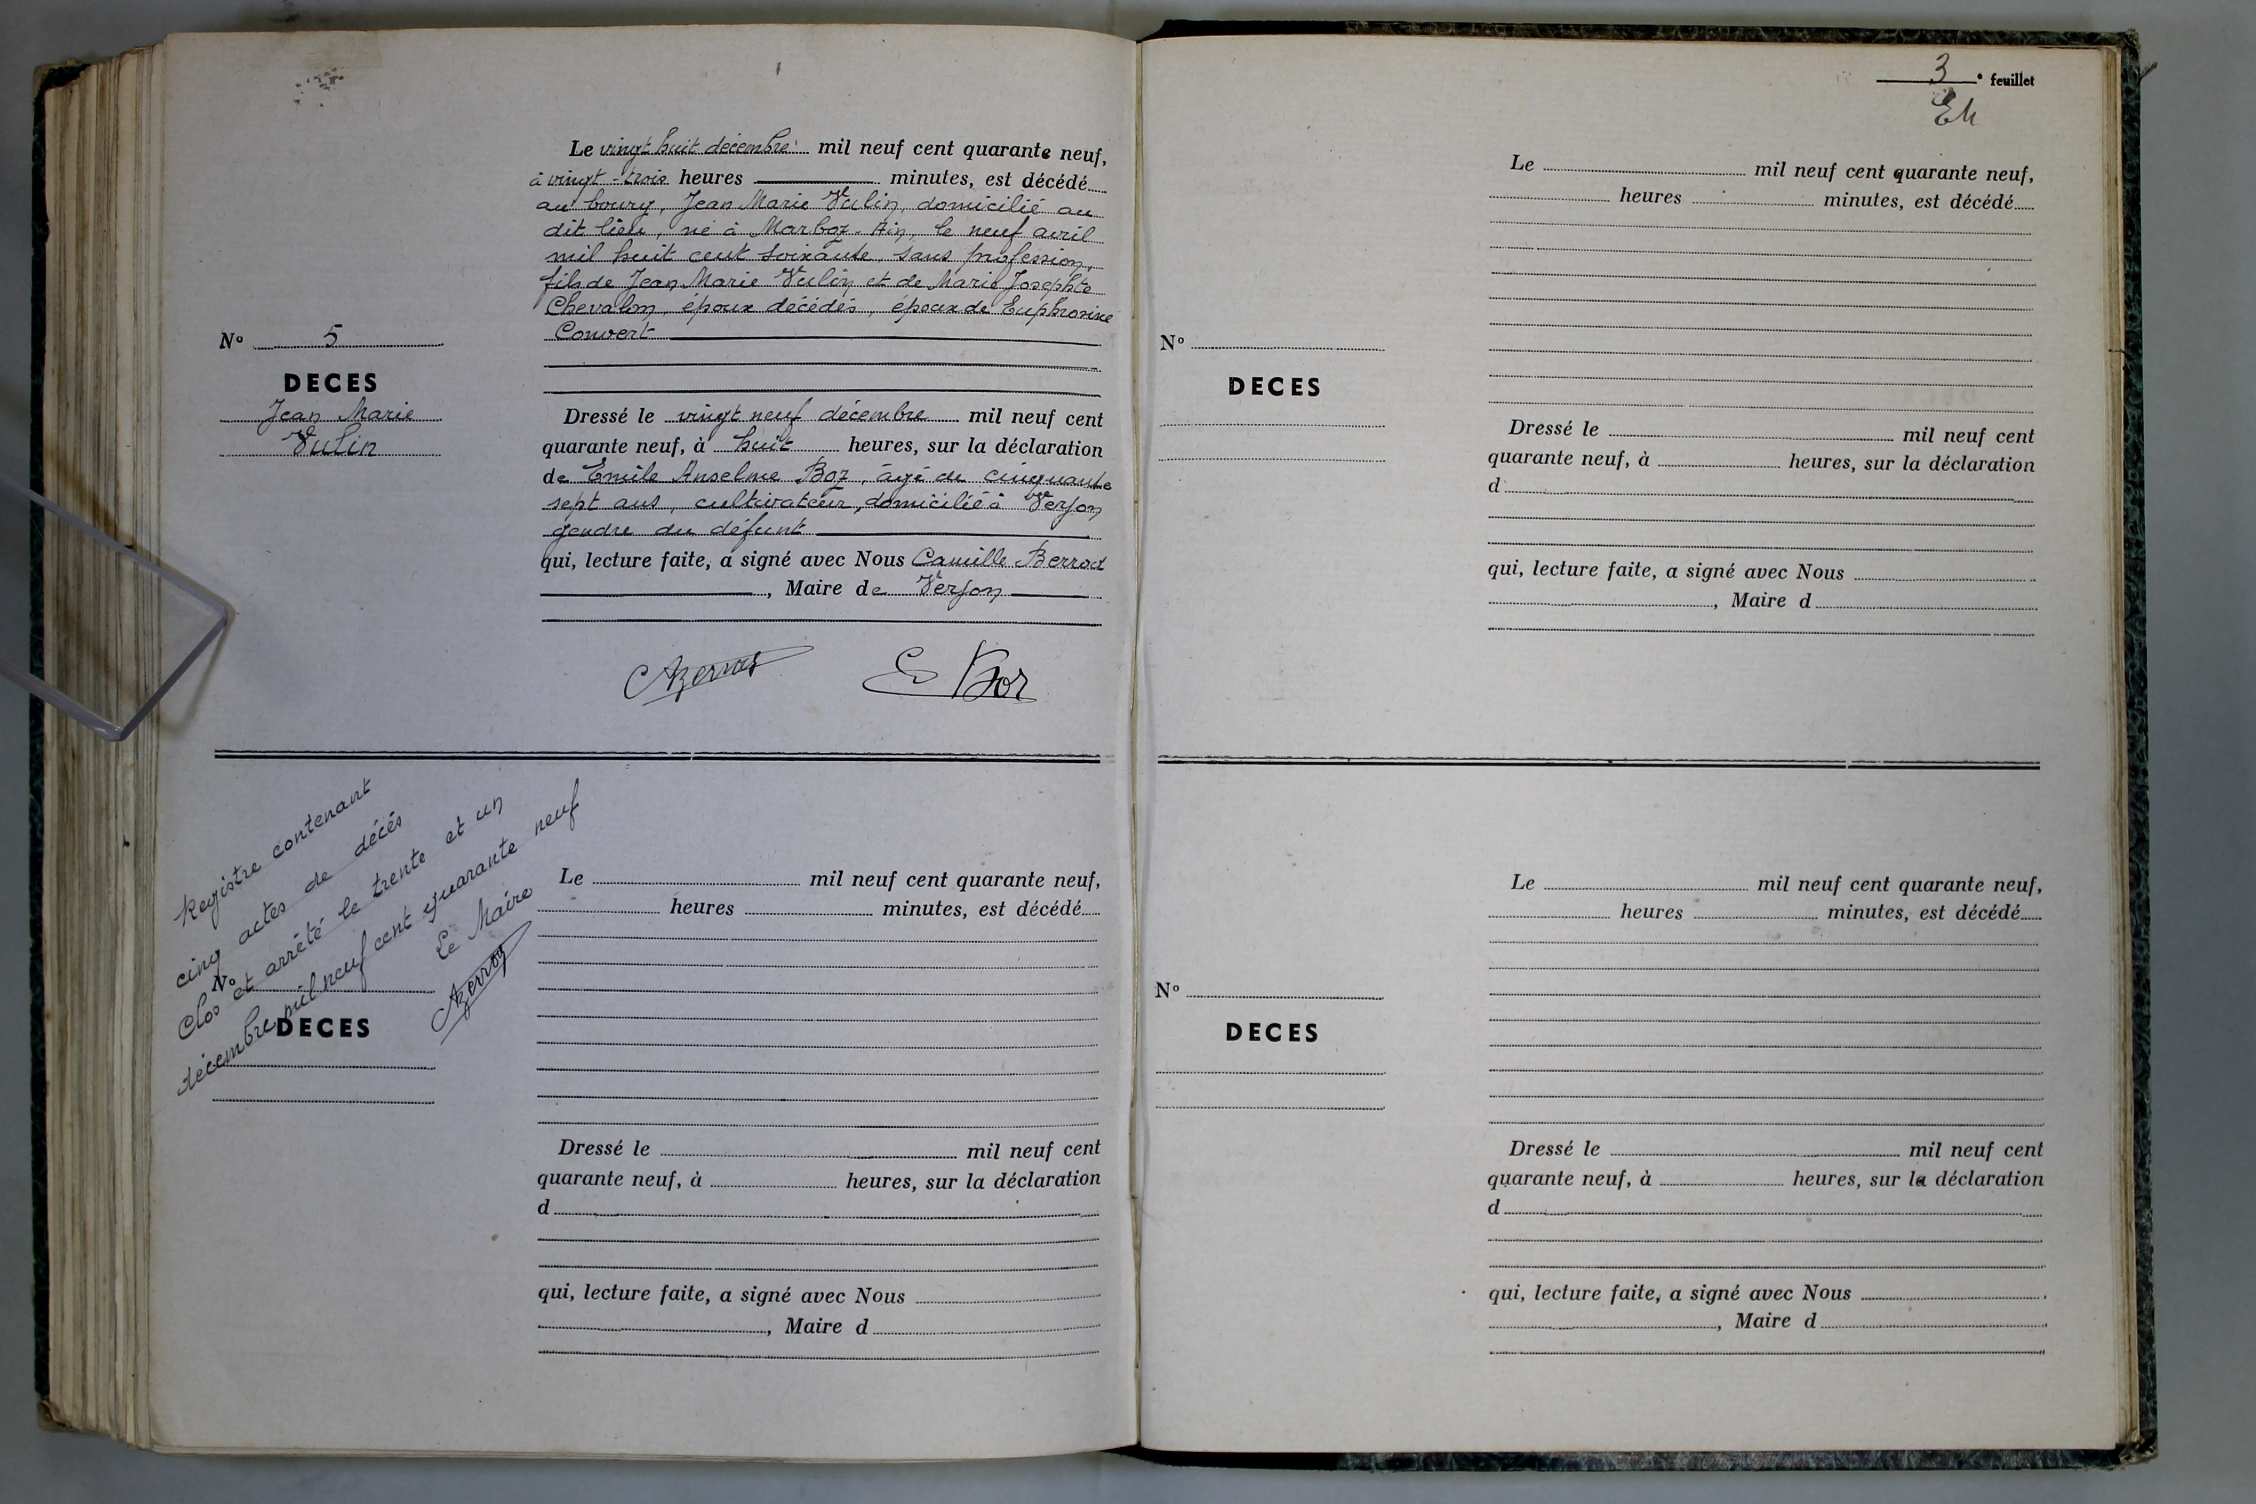 Le vingt huit décembre mil neuf cent quarante neuf,
à vingt-trois heures minutes, est décédé
au bourg, Jean Marie Vulin, domicilié au
dit lieu, né à Marboz-Ain, le neuf avril
mil huit cent soixante, sans profession,
fils de Jean Marie Vulin et de Marie Josephte
Chevalon, époux décédés, époux de Euphrosine
Convert
N° 5
DECES
Jean Marie
Vulin
Dressé le vingt neuf décembre mil neuf cent
quarante neuf, à huit heures, sur la déclaration
de Emile Anselme Boz, âgé de cinquante
sept ans, cultivateur, domicilié à Verjon
gendre du défunt
qui, lecture faite, a signé avec Nous Camille Berrod
, Maire de Verjon
E Boz
Registre contenant
cinq actes de décés
Clos et arrêté le trente et un
décembre mil neuf cent quarante neuf
Le Maire
Le mil neuf cent quarante neuf,
heures minutes, est décédé
N°
DECES
Dressé le mil neuf cent
quarante neuf, à heures, sur la déclaration
d
qui, lecture faite, a signé avec Nous
, Maire d
3 e feuillet
Le mil neuf cent quarante neuf,
heures minutes, est décédé
N°
DECES
Dressé le mil neuf cent
quarante neuf, à heures, sur la déclaration
d
qui, lecture faite, a signé avec Nous
, Maire d
Le mil neuf cent quarante neuf,
heures minutes, est décédé
N°
DECES
Dressé le mil neuf cent
quarante neuf, à heures, sur la déclaration
d
qui, lecture faite, a signé avec Nous
, Maire d